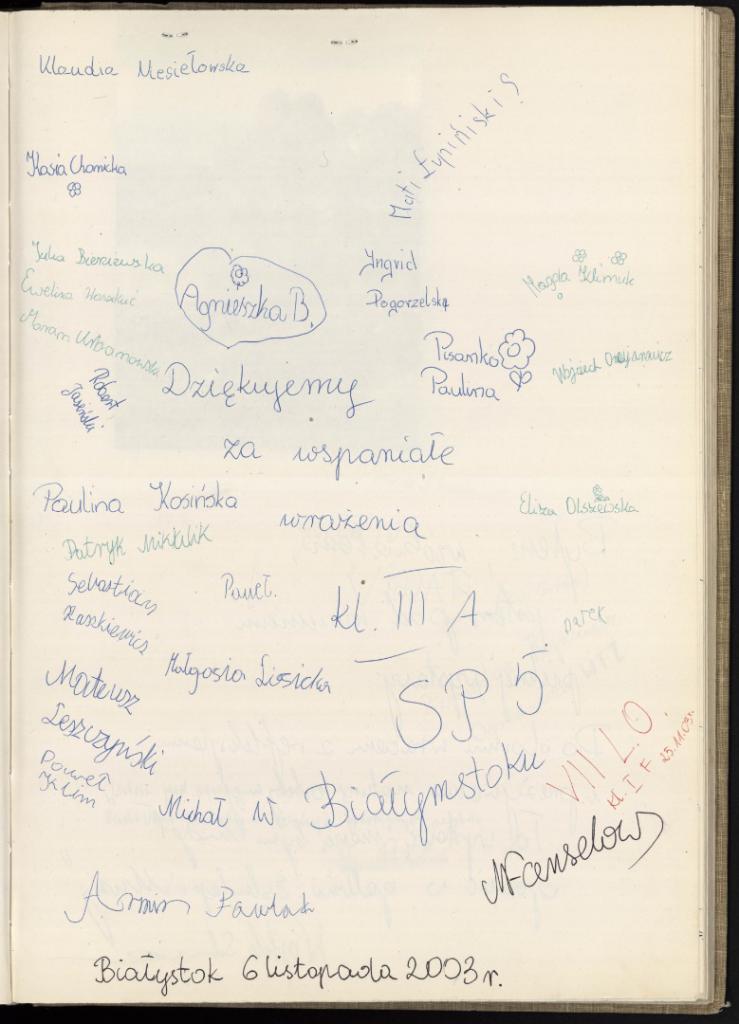 Klaudia Mesiełowska
Mati Łupiński
Kasia Chomicka
Julia
Ewelina
Marian Urbanowski
Agnieszka B.
Ingrid
Pogorzelska
Magda Klimuk
Pisanko
Paulina
Wojciech
Robert
Jasiński
Dziękujemy
za wspaniałe
wrażenia
Paulina Kosińska
Eliza Olszewska
Patryk
Sebastian
Raszkiewicz
Paweł.
kl. III A
Małgosia Lisicka
SP 5
Mateusz
Leszczyński
Paweł
Klim
Michał W
Białymstoku
VII L.O.
kl. I F
25.11.03r.
Armin Pawlak
Białystok 6 listopada 2003 r.